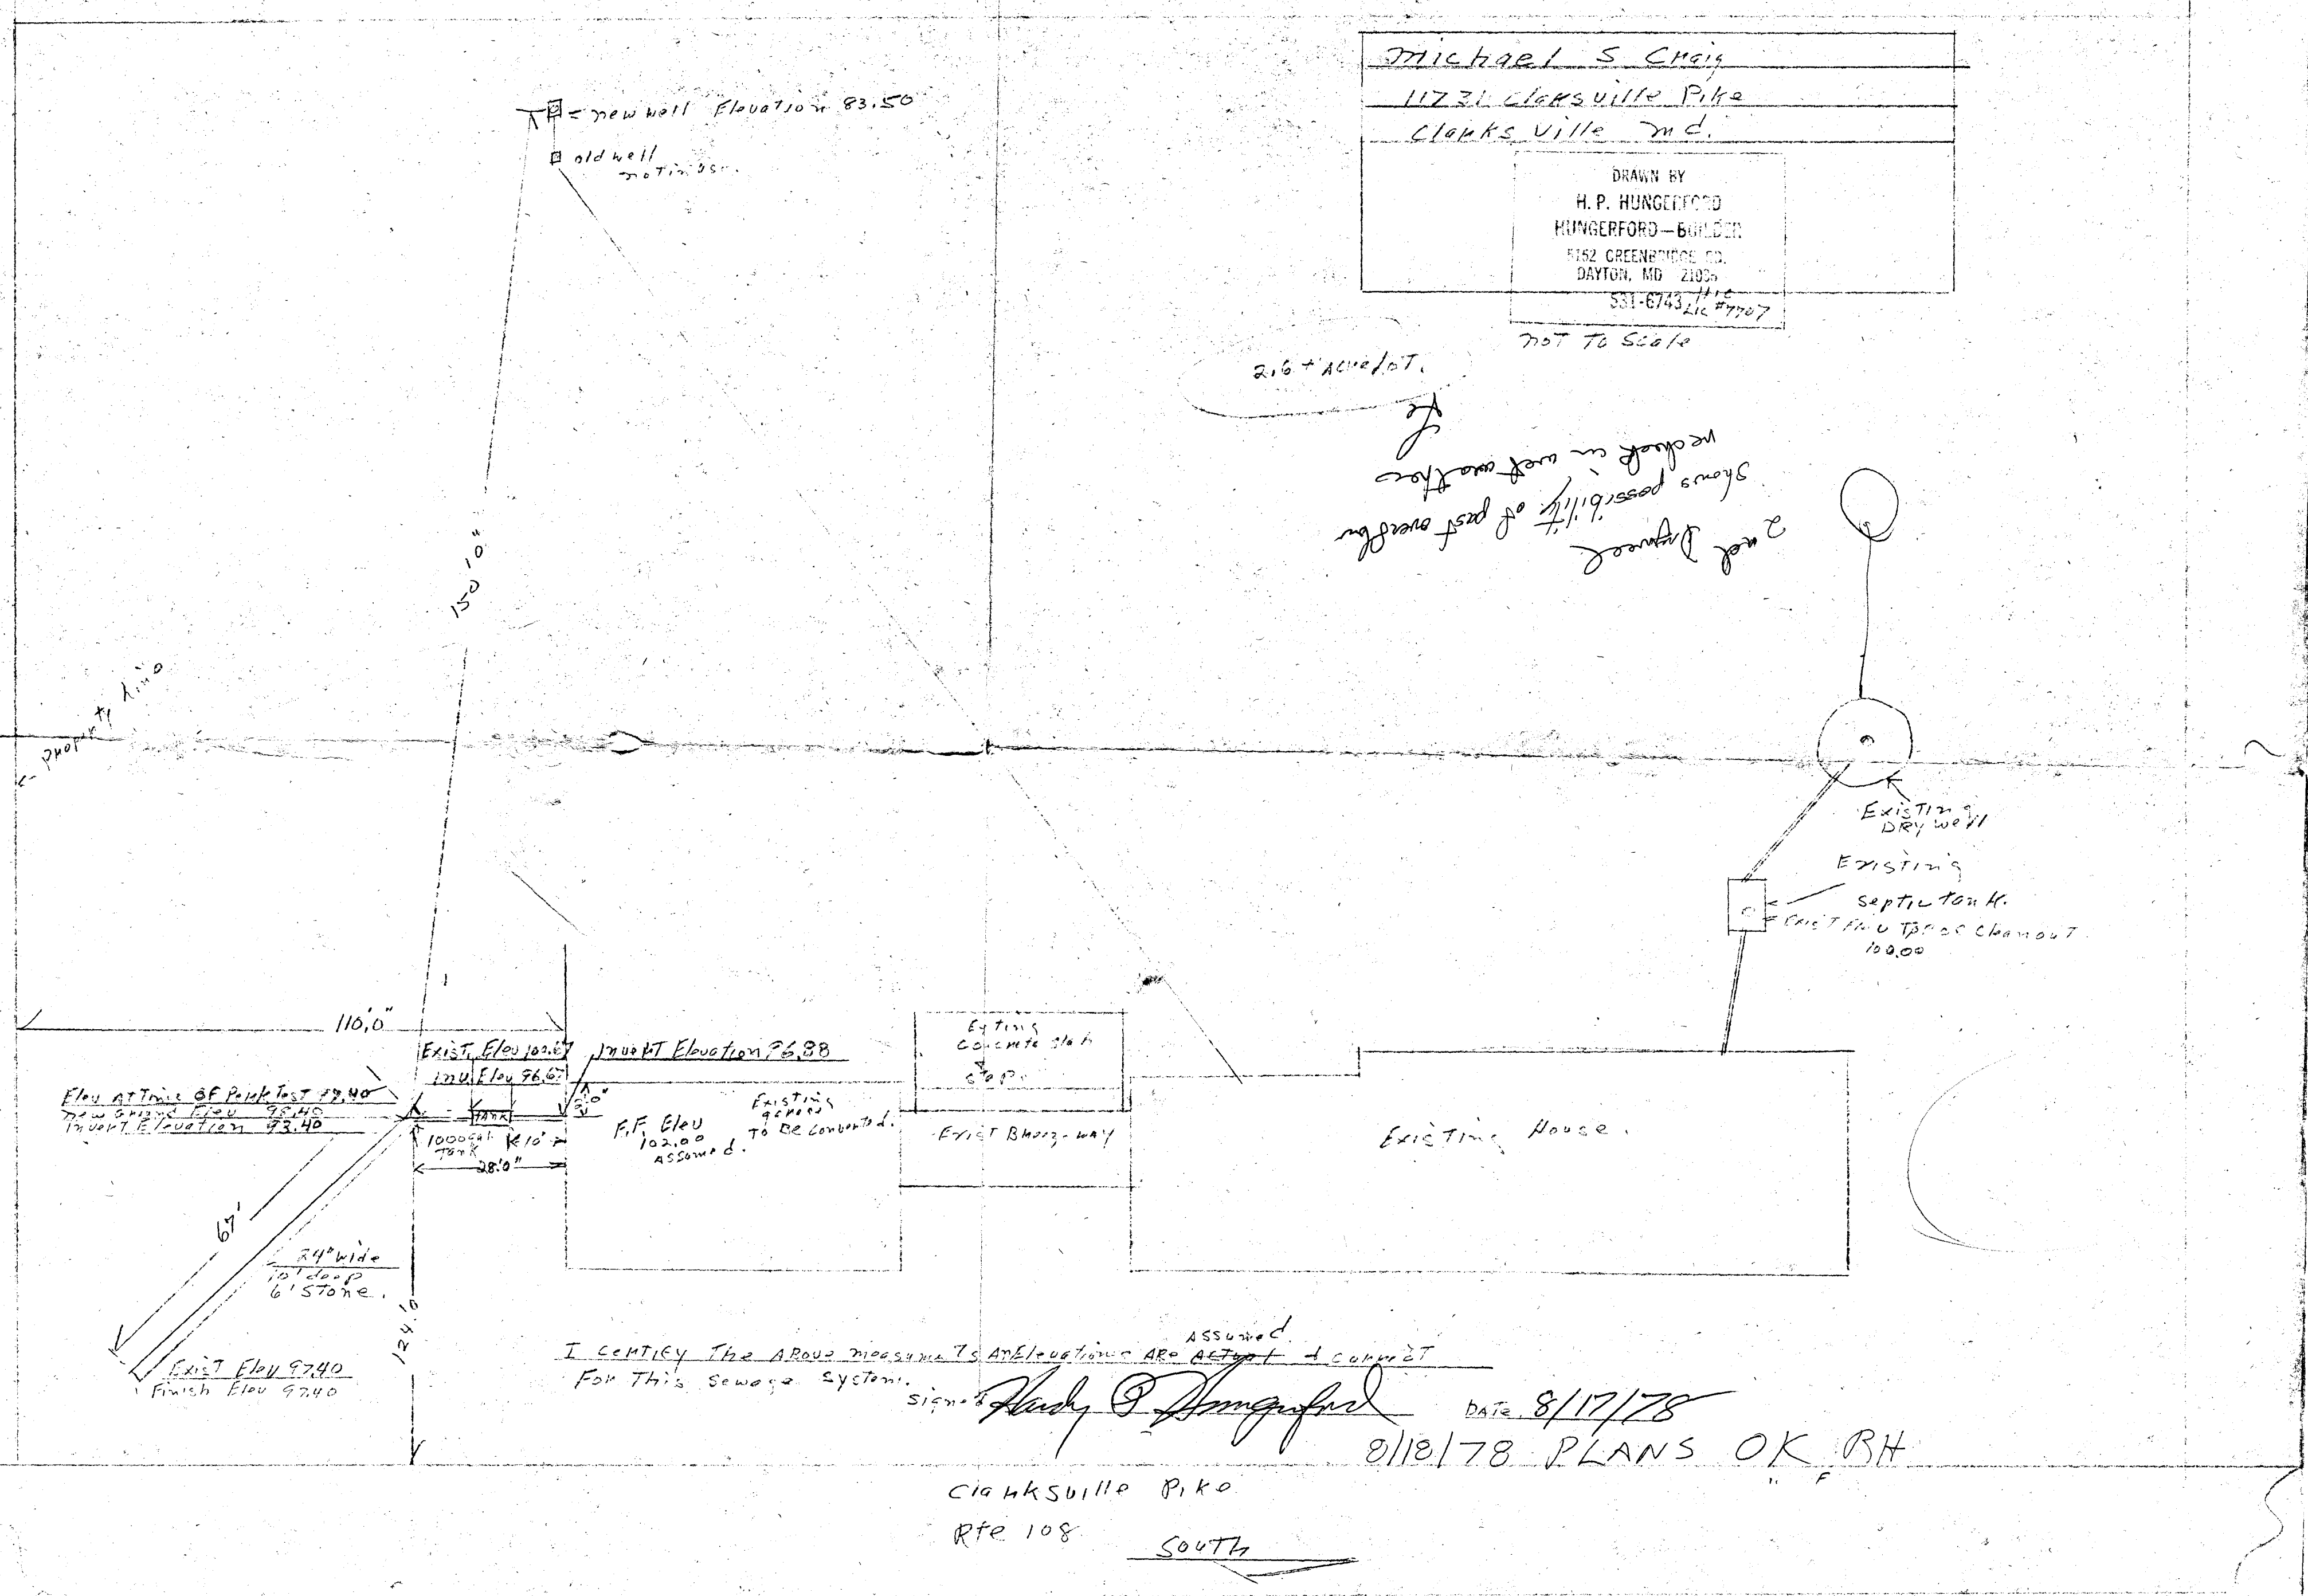 Michael S Craig
11731 Clarksville Pike
Clarksville Md.
DRAWN BY
H. P. HUNGERFORD
HUNGERFORD—BUILDER
5152 GREENBRIDGE RD.
DAYTON, MD
531-6743
Lic #7707
not To Scale
= new well Elevation 83.50
old well
not in use.
2.6 + Acre lot.
2nd Drywell
Shows possibility of past overflow
recheck in wet weather
150'0"
← Property Line
Existing
DRY well
Existing
septic tank.
Exist Elev Top of Cleanout
100.00
110'0"
Exist. Elev 100.67
Invert Elevation 96.88
Inv. Elev 96.67
Exting
Concrete slab
Step
Elev At Time OF Perk Test 97.40
new Ground Elev 98.40
Invert Elevation 93.40
TANK
1000 Gal
Tank
10'
28'0"
F.F. Elev
102.00
Assumed.
Existing
To Be Converted.
Exist Breeze-way
Existing House.
67'
24" wide
10' deep
6' Stone.
124'.0
Exist Elev 97.40
Finish Elev 97.40
Assumed.
I Certify The Above measurem'ts An Elevations Are Actual & Correct
For This Sewage System.
Signed Hardy P Hungerford DATE 8/17/78
8/18/78 PLANS OK BH
Clarksville Pike
Rte 108
South